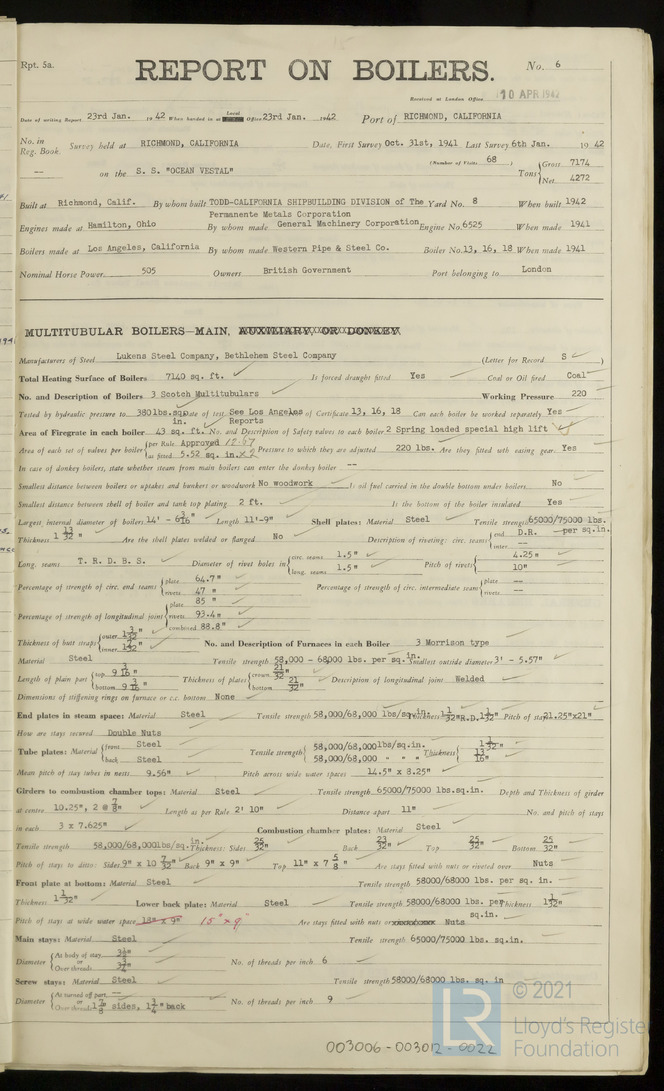 Rpt. 5a.
REPORT ON BOILERS.
No. 6
Received at London Office
10 APR 1942
Date of writing Report 23rd Jan. 1942 When handed in at Local Office 23rd Jan. 1942 Port of RICHMOND, CALIFORNIA
No. in Reg. Book. Survey held at RICHMOND, CALIFORNIA Date, First Survey Oct. 31st, 1941 Last Survey 6th Jan. 1942
(Number of Visits 68 )
— on the S. S. "OCEAN VESTAL" Tons { Gross 7174 Net 4272
Built at Richmond, Calif. By whom built TODD-CALIFORNIA SHIPBUILDING DIVISION of The Permanente Metals Corporation Yard No. 8 When built 1942
Engines made at Hamilton, Ohio By whom made General Machinery Corporation Engine No. 6525 When made 1941
Boilers made at Los Angeles, California By whom made Western Pipe & Steel Co. Boiler No. 13, 16, 18 When made 1941
Nominal Horse Power 505 Owners British Government Port belonging to London
MULTITUBULAR BOILERS—MAIN, AUXILIARY, OR DONKEY
Manufacturers of Steel Lukens Steel Company, Bethlehem Steel Company (Letter for Record S )
Total Heating Surface of Boilers 7140 sq. ft. Is forced draught fitted Yes Coal or Oil fired Coal
No. and Description of Boilers 3 Scotch Multitubulars Working Pressure 220
Tested by hydraulic pressure to 380 lbs. sq. in. Date of test See Los Angeles Reports No. of Certificate 13, 16, 18 Can each boiler be worked separately Yes
Area of Firegrate in each boiler 43 sq. ft. No. and Description of Safety valves to each boiler 2 Spring loaded special high lift
Area of each set of valves per boiler { per Rule Approved as fitted 5.52 sq. in. x 2 Pressure to which they are adjusted 220 lbs. Are they fitted with easing gear Yes
In case of donkey boilers, state whether steam from main boilers can enter the donkey boiler --
Smallest distance between boilers or uptakes and bunkers or woodwork No woodwork Is oil fuel carried in the double bottom under boilers No
Smallest distance between shell of boiler and tank top plating 2 ft. Is the bottom of the boiler insulated Yes
Largest internal diameter of boilers 14' - 6 3/16" Length 11'-9" Shell plates: Material Steel Tensile strength 65000/75000 lbs. per sq. in.
Thickness 1 13/32" Are the shell plates welded or flanged No Description of riveting: circ. seams { end D.R. inter. —
Long. seams T. R. D. B. S. Diameter of rivet holes in { circ. seams 1.5" long. seams 1.5" Pitch of rivets { 4.25" 10"
Percentage of strength of circ. end seams { plate 64.7" rivets 47 " Percentage of strength of circ. intermediate seam { plate — rivets —
Percentage of strength of longitudinal joint { plate 85 " rivets 93.4" combined 88.8"
Thickness of butt straps { outer 1 3/32" inner 1 7/32" No. and Description of Furnaces in each Boiler 3 Morrison type
Material Steel Tensile strength 58,000 - 68,000 lbs. per sq. in. Smallest outside diameter 3' - 5.57"
Length of plain part { top 9 3/16" bottom 9 3/16" Thickness of plates { crown 21/32" bottom 21/32" Description of longitudinal joint Welded
Dimensions of stiffening rings on furnace or c.c. bottom None
End plates in steam space: Material Steel Tensile strength 58,000/68,000 lbs/sq.in. Thickness 1 1/32" R.D. 1 1/32" Pitch of stays 21.25"x21"
How are stays secured Double Nuts
Tube plates: Material { front Steel back Steel Tensile strength { 58,000/68,000 lbs/sq.in. 58,000/68,000 " " " Thickness { 1 1/32" 13/16"
Mean pitch of stay tubes in nests 9.56" Pitch across wide water spaces 14.5" x 8.25"
Girders to combustion chamber tops: Material Steel Tensile strength 65000/75000 lbs.sq.in. Depth and Thickness of girder
at centre 10.25", 2 @ 7/8" Length as per Rule 2' 10" Distance apart 11" No. and pitch of stays
in each 3 x 7.625" Combustion chamber plates: Material Steel
Tensile strength 58,000/68,000 lbs/sq.in. Thickness: Sides 25/32" Back 23/32" Top 25/32" Bottom 25/32"
Pitch of stays to ditto: Sides 9" x 10 7/32" Back 9" x 9" Top 11" x 7 5/8" Are stays fitted with nuts or riveted over Nuts
Front plate at bottom: Material Steel Tensile strength 58000/68000 lbs. per sq. in.
Thickness 1 1/32" Lower back plate: Material Steel Tensile strength 58000/68000 lbs. per sq.in. Thickness 1 1/32"
Pitch of stays at wide water space 18" x 9" 15" x 9" Are stays fitted with nuts or Nuts
Main stays: Material Steel Tensile strength 65000/75000 lbs. sq.in.
Diameter { At body of stay or Over threads No. of threads per inch 6
Screw stays: Material Steel Tensile strength 58000/68000 lbs. sq. in
Diameter { At turned off part — or Over threads 1 7/8" sides, 1 3/4" back No. of threads per inch 9
003006-003012-0022
© 2021
LR
Lloyd's Register
Foundation